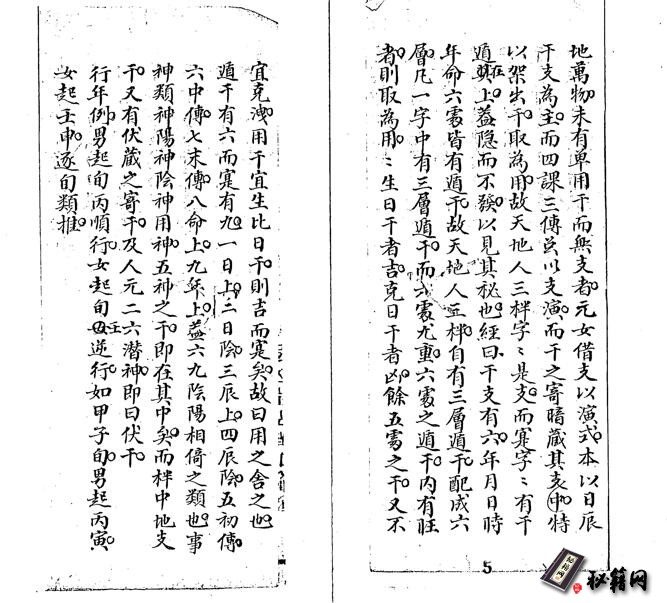 地萬物未有單用干而無支者元女借支以演式本以日辰
干支為主而四課三傳災以支演而干之寄暗藏其支中特
以架出干取為用故天地人三柈字〻是支而寔字〻有干
遁在上蓋隐而不發以見其秘也經曰干支有六年月日時
年命六䖏皆有遁干故天地人三柈自有三層遁干配成六
層凡一字中有三層遁干而六䖏尤重六䖏之遁干内有旺
者則取為用〻生日干者吉克日干者凶餘五䖏之干又不
5
宜克洩用干宜生比日干則吉而寔矣故曰用之舍之也
遁干有六而寔有九一日上二日陰三辰上四辰陰五初傳
六中傳七末傳八命上九年上蓋六九陰陽相倚之類也事
神類神陽神陰神用神五神之干即在其中矣而柈中地支
干又有伏藏之寄干及人元二六潜神即曰伏干
行年例男起旬丙順行女起旬壬逆行如甲子旬男起丙寅
女起壬申逐旬類推
秘籍网
秘籍网